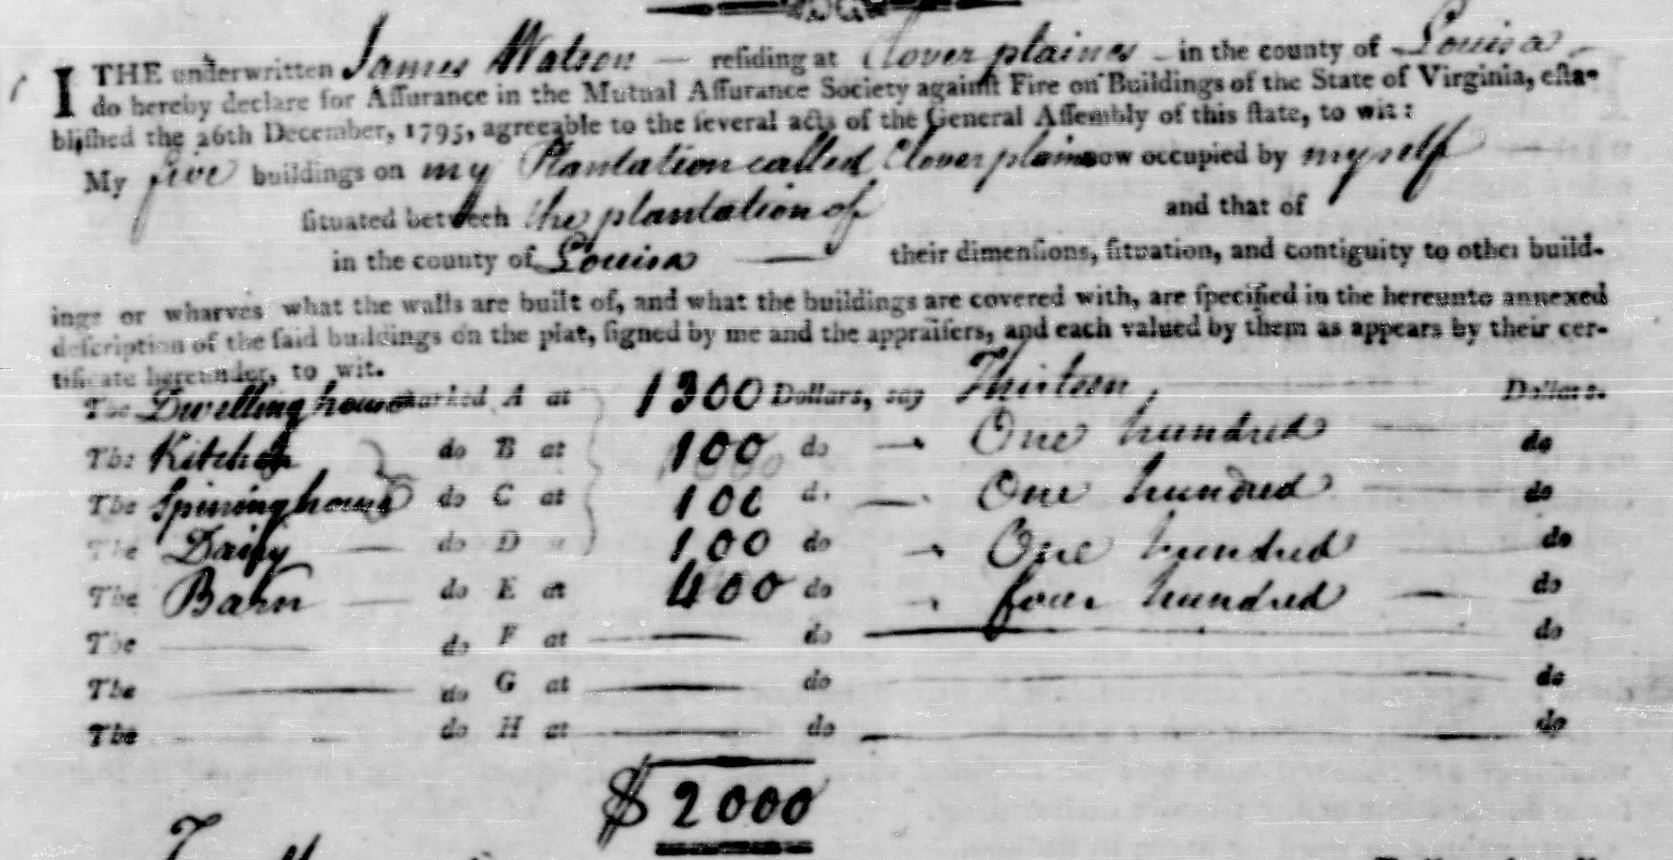 I THE underwritten James Watson — reſiding at Clover plaines — in the county of Louisa
do hereby declare for Aſſurance in the Mutual Aſſurance Society againſt Fire on Buildings of the State of Virginia, eſta-
bliſhed the 26th December, 1795, agreeable to the ſeveral acts of the General Aſſembly of this ſtate, to wit:
My five buildings on my Plantation called Clover plains now occupied by myself —
ſituated between the plantation of and that of
in the county of Louisa — their dimenſions, ſituation, and contiguity to other build-
ings or wharves what the walls are built of, and what the buildings are covered with, are ſpecified in the hereunto annexed
deſcription of the ſaid buildings on the plat, ſigned by me and the appraiſers, and each valued by them as appears by their cer-
tificate hereunder, to wit.
The Dwelling house marked A at 1300 Dollars, say Thirteen — Dollars.
The Kitchen do B at 100 do — One hundred — do
The Spining house do C at 100 do — One hundred — do
The Dairy — do D at 100 do — One hundred do
The Barn — do E at 400 do — four hundred — do
The — do F at — do — do
The — do G at — do — do
The — do H at — do — do
$ 2000